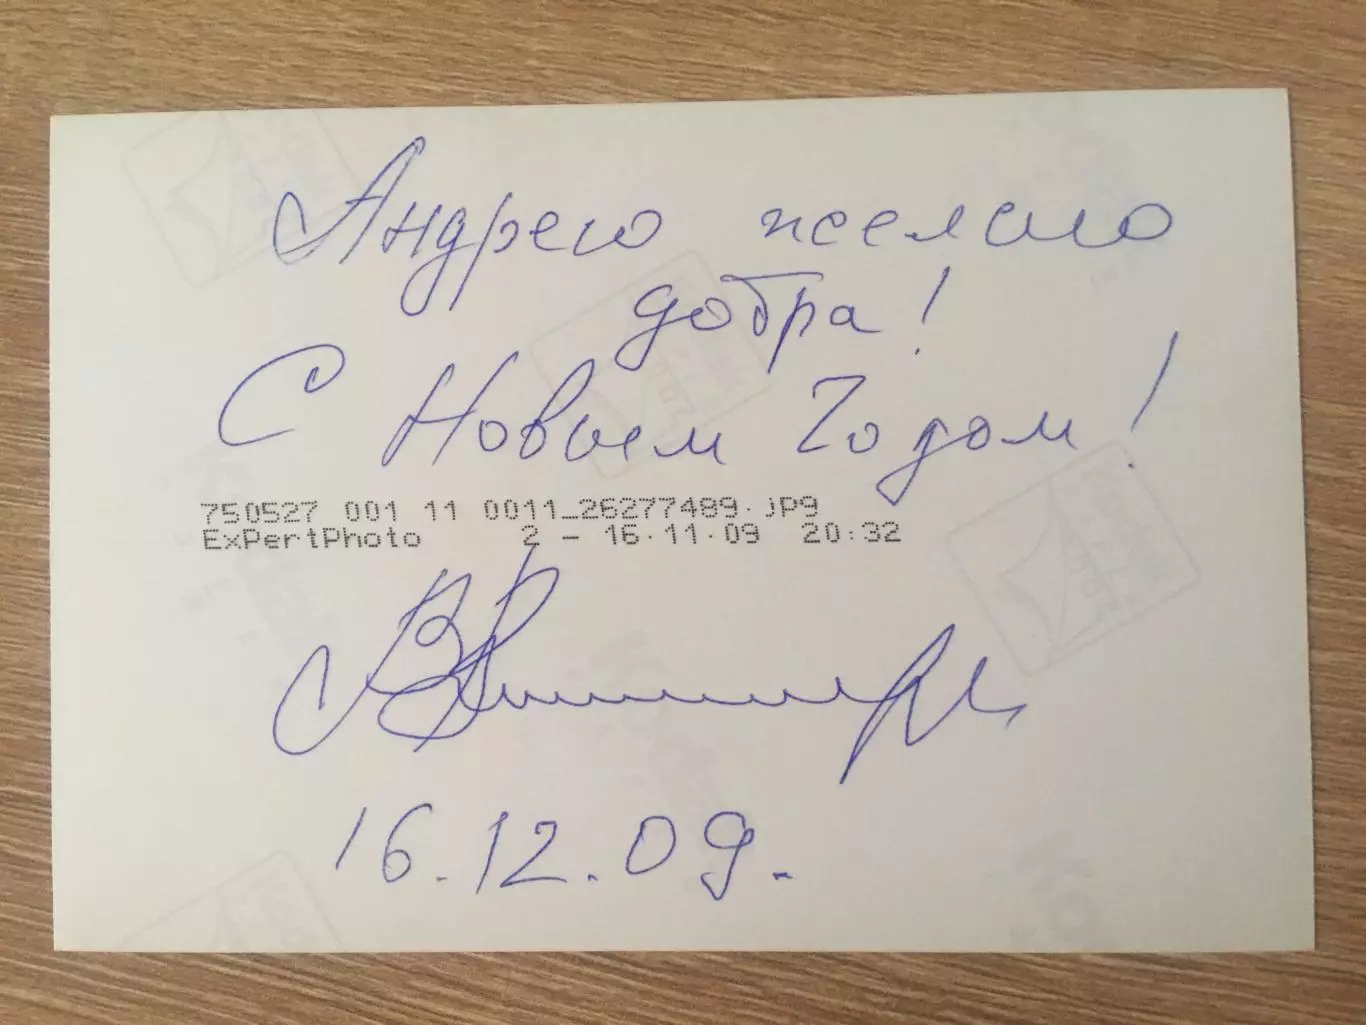 Андрею желаю
добра!
С Новым Годом!
750527 001 11 0011_26277489.jpg
ExPertPhoto 2 - 16.11.09 20:32
16.12.09.